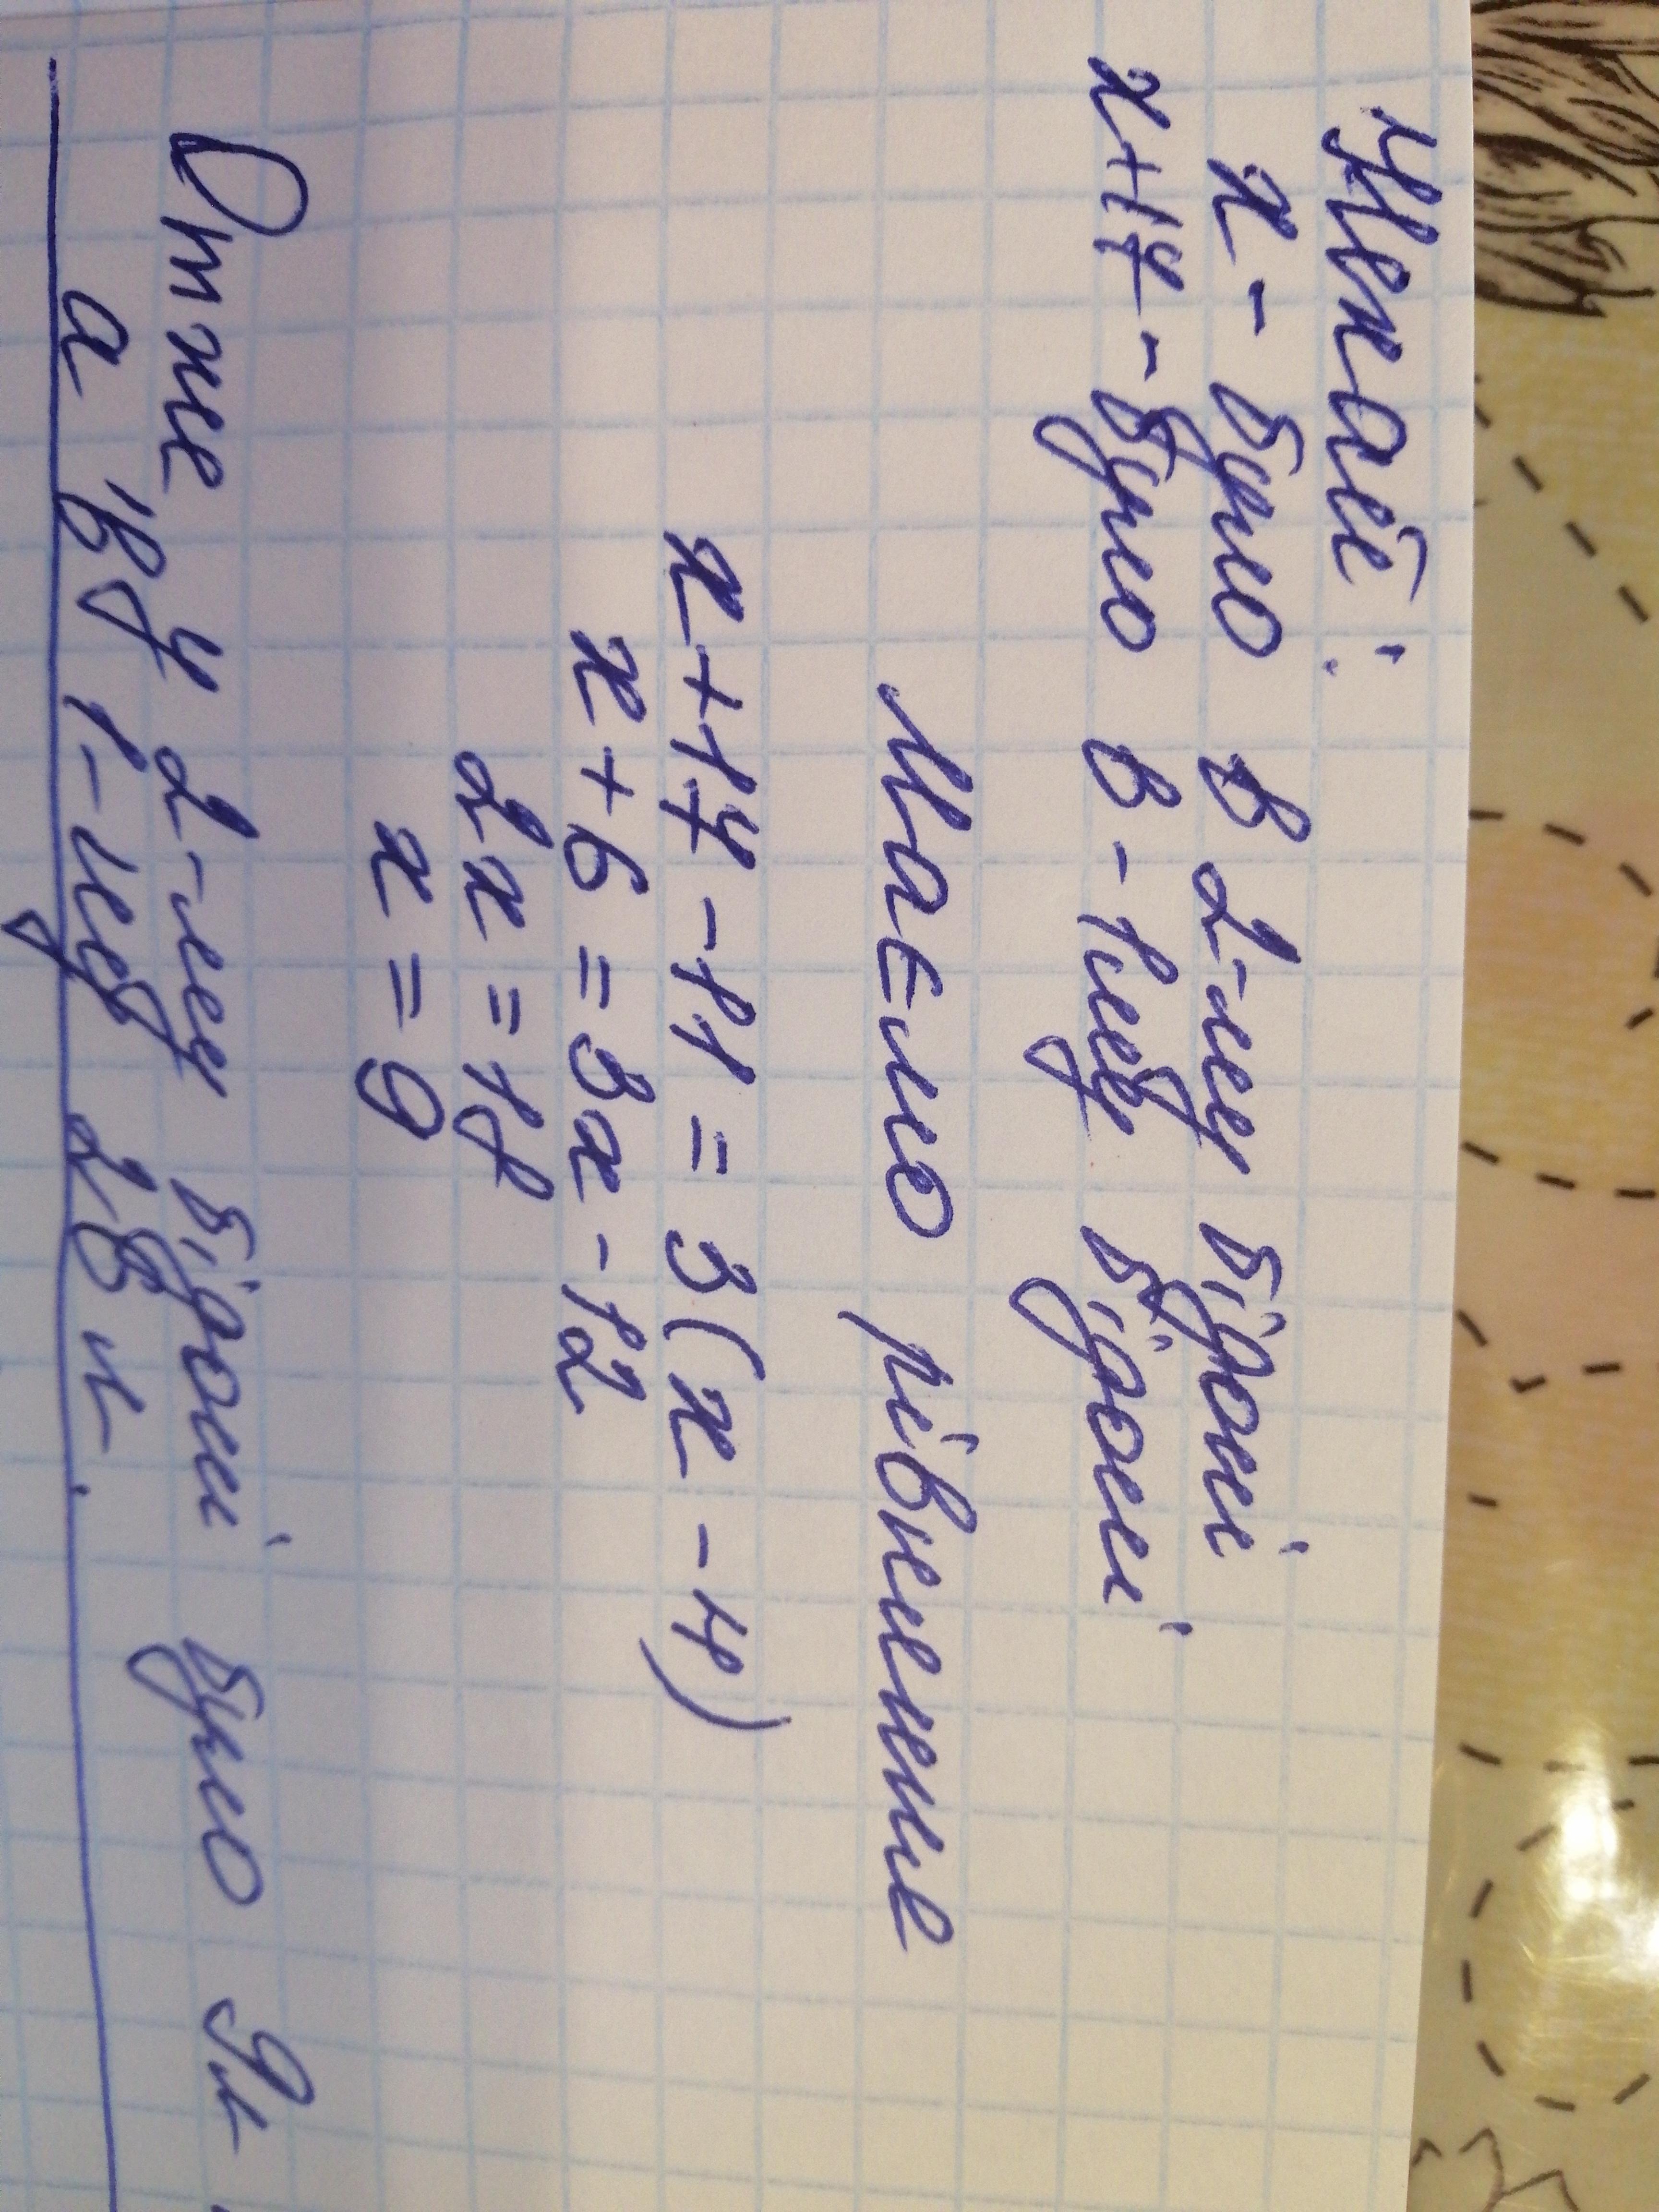 Нехай:
x - було в 2-му бідоні
x+17 - було в - 1му бідоні
Маємо рівнення
x+17-11 = 3(x-4)
x+6 = 3x-12
2x = 18
x = 9
Отже у 2-му бідоні було 9л
а в у 1-му 26 л.